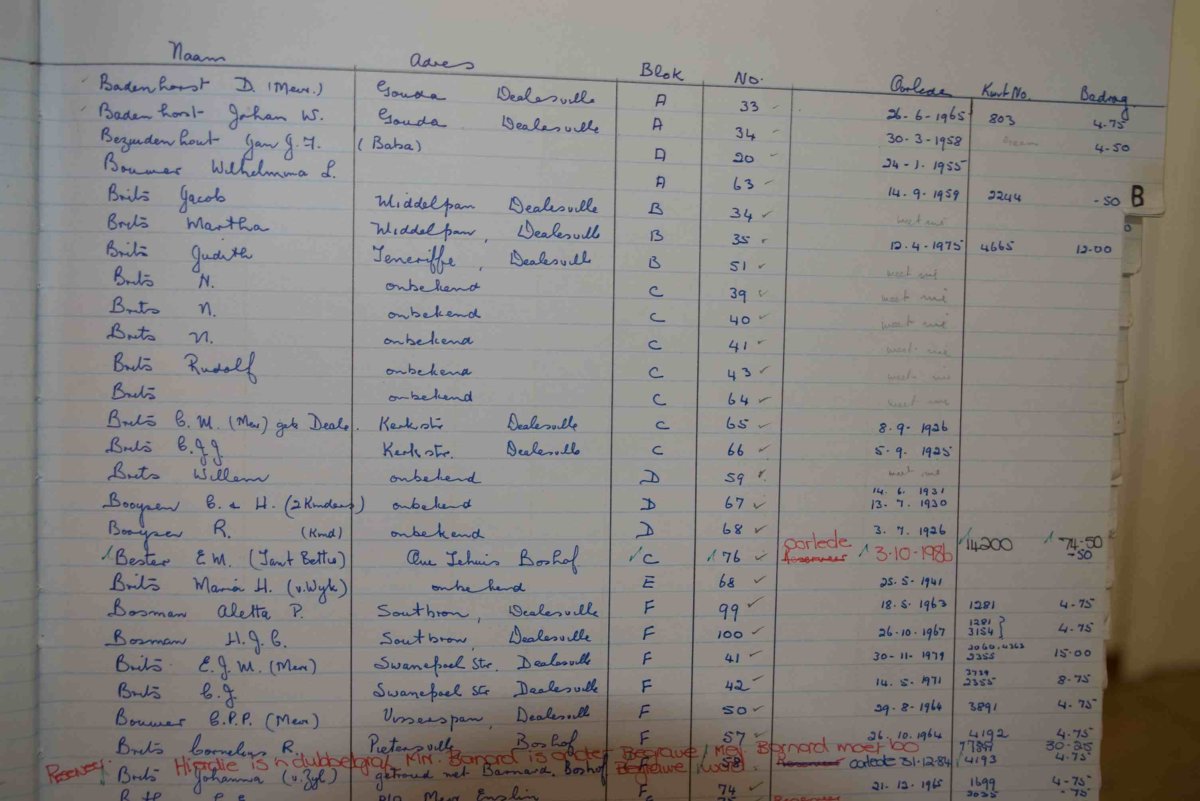 Naam Adres Blok No. Oorlede Kwt No. Bedrag
Badenhorst D. (Mev.) Gouda Dealesville A 33 26-6-1965 803 4-75
Badenhorst Johan W. Gouda Dealesville A 34 30-3-1958 4-50
Bezuidenhout Jan G.J. (Baba) A 20 24-1-1955
Bouwer Wilhelmina L. A 63 14-9-1959 2244 -50
B
Brits Jacob Middelpan Dealesville B 34 weet nie
Brits Martha Middelpan, Dealesville B 35 12-4-1975 4665 12-00
Brits Judith Teneriffe, Dealesville B 51 weet nie
Brits N. onbekend C 39 weet nie
Brits N. onbekend C 40 weet nie
Brits N. onbekend C 41 weet nie
Brits Rudolf onbekend C 43 weet nie
Brits onbekend C 64 weet nie
Brits C.M. (Mev) geb Deale. Kerkstr Dealesville C 65 8-9-1926
Brits C.J.J Kerkstr. Dealesville C 66 5-9-1925
Brits Willem onbekend D 59 weet nie
Booysen C. & H. (2 Kinders) onbekend D 67 14.6.1931 13-7.1930
Booysen R. (Kind) onbekend D 68 3.7.1926
Bester E.M. (Tant Bettie) Ou Tehuis Boshof C 76 oorlede Reserveer 3-10-1986 14200 74-50 -50
Brits Maria H. (v. Wyk) onbekend E 68 25-5-1941
Bosman Aletta P. Soutbron, Dealesville F 99 18.5.1963 1281 4-75
Bosman H.J.C. Soutbron, Dealesville F 100 26.10.1967 1281 3154 } 4-75
Brits E.J.M. (Mev) Swanepoel Str. Dealesville F 41 30-11-1979 2060.4363 2355 15.00
Brits C.J Swanepoel Str Dealesville F 42 14.5.1971 3739 2355 8-75
Bouwer C.P.P. (Mev) Visserspan, Dealesville F 50 29.8.1964 3891 4-75
Brits Cornelius R. Pietersville Boshof F 57 26.10.1964 4192 4-75
Reserveer: Hierdie is 'n dubbelgraf. Mnr. Barnard is onder Begrawe, Mev. Barnard moet bo
Brits Johanna (v. Zyl) getroud met Barnard. Boshof F 58 Begrawe word. Reserveer oorlede 31-12-84 7789 4193 30-25 4.75
F 74 21-12-1965 1699 4-75
Mev Enslin F 75 3035 -75